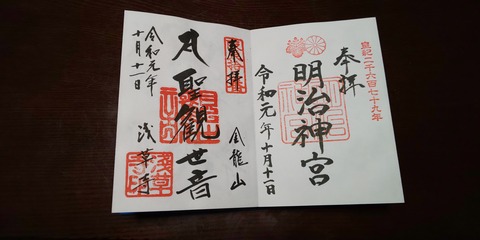 皇紀二千六百七十九年
奉拝
明治神宮
令和元年十月十一日
奉拝
金龍山
聖観世音
浅草寺
令和元年
十月十一日